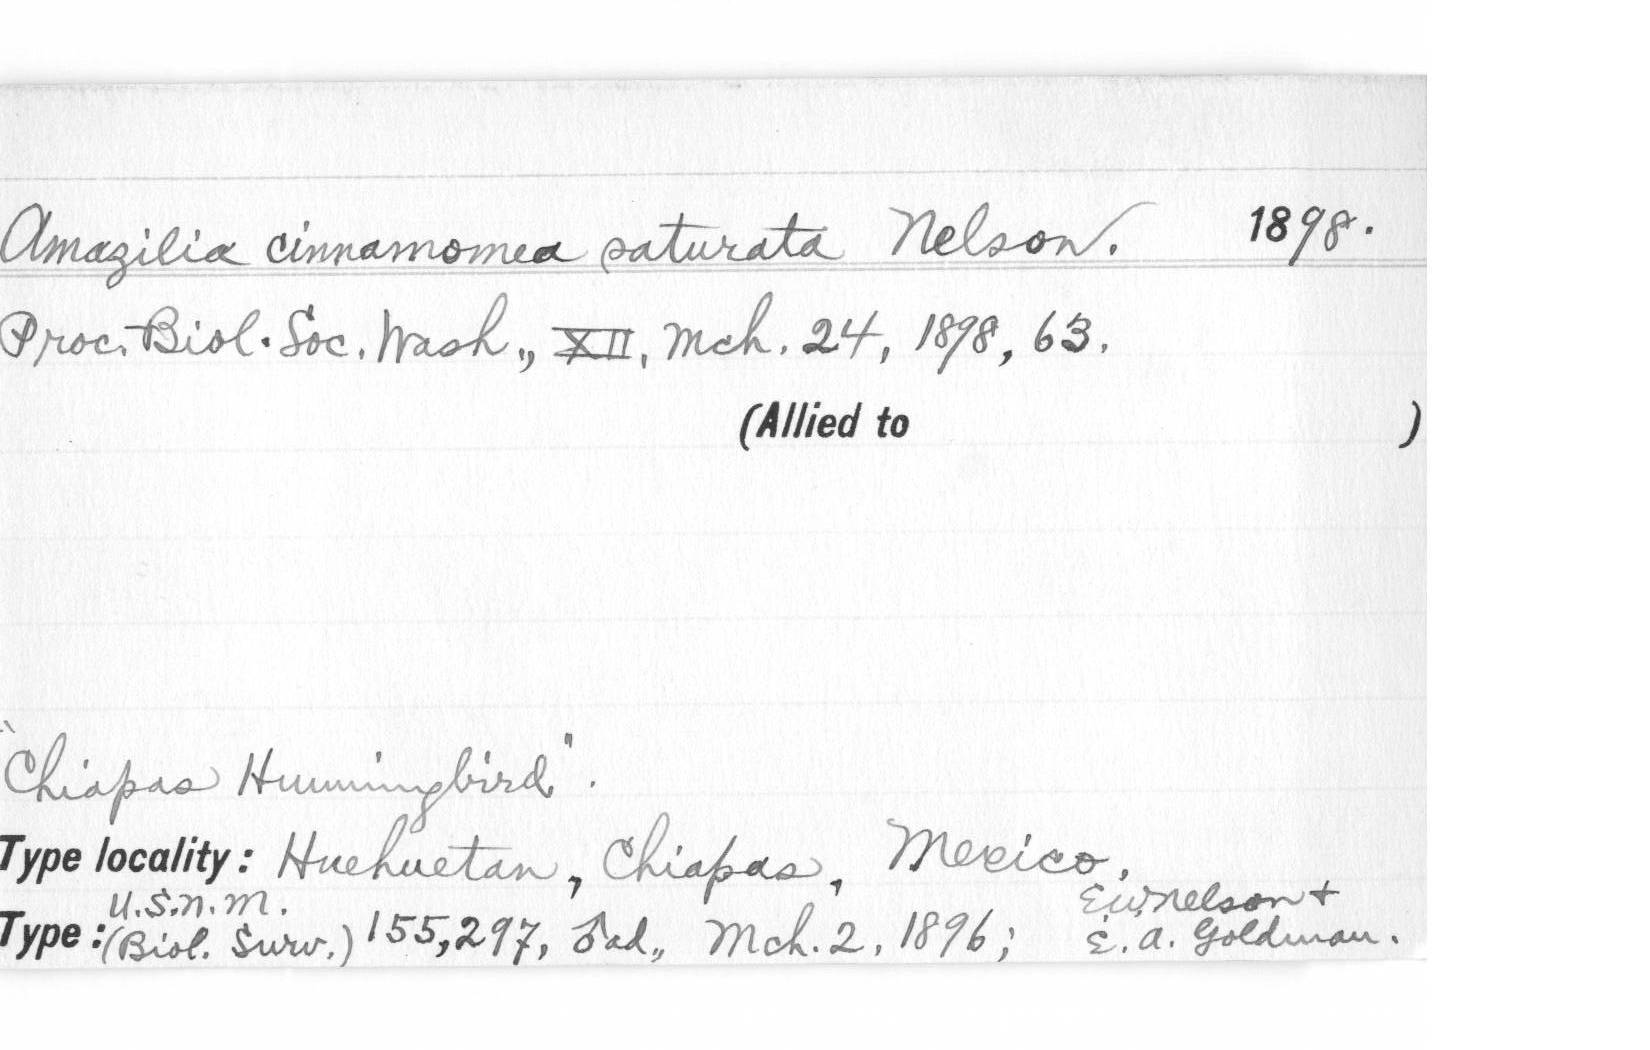 Amazilia cinnamomea saturata Nelson. 1898.
Proc. Biol. Soc. Wash., XII, Mch. 24, 1898, 63.
(Allied to )
"Chiapas Hummingbird".
Type locality: Huehuetan, Chiapas, Mexico.
U.S.N.M. E.W. Nelson +
Type: (Biol. Surv.) 155,297, ♂ ad., Mch. 2, 1896; E. A. Goldman.